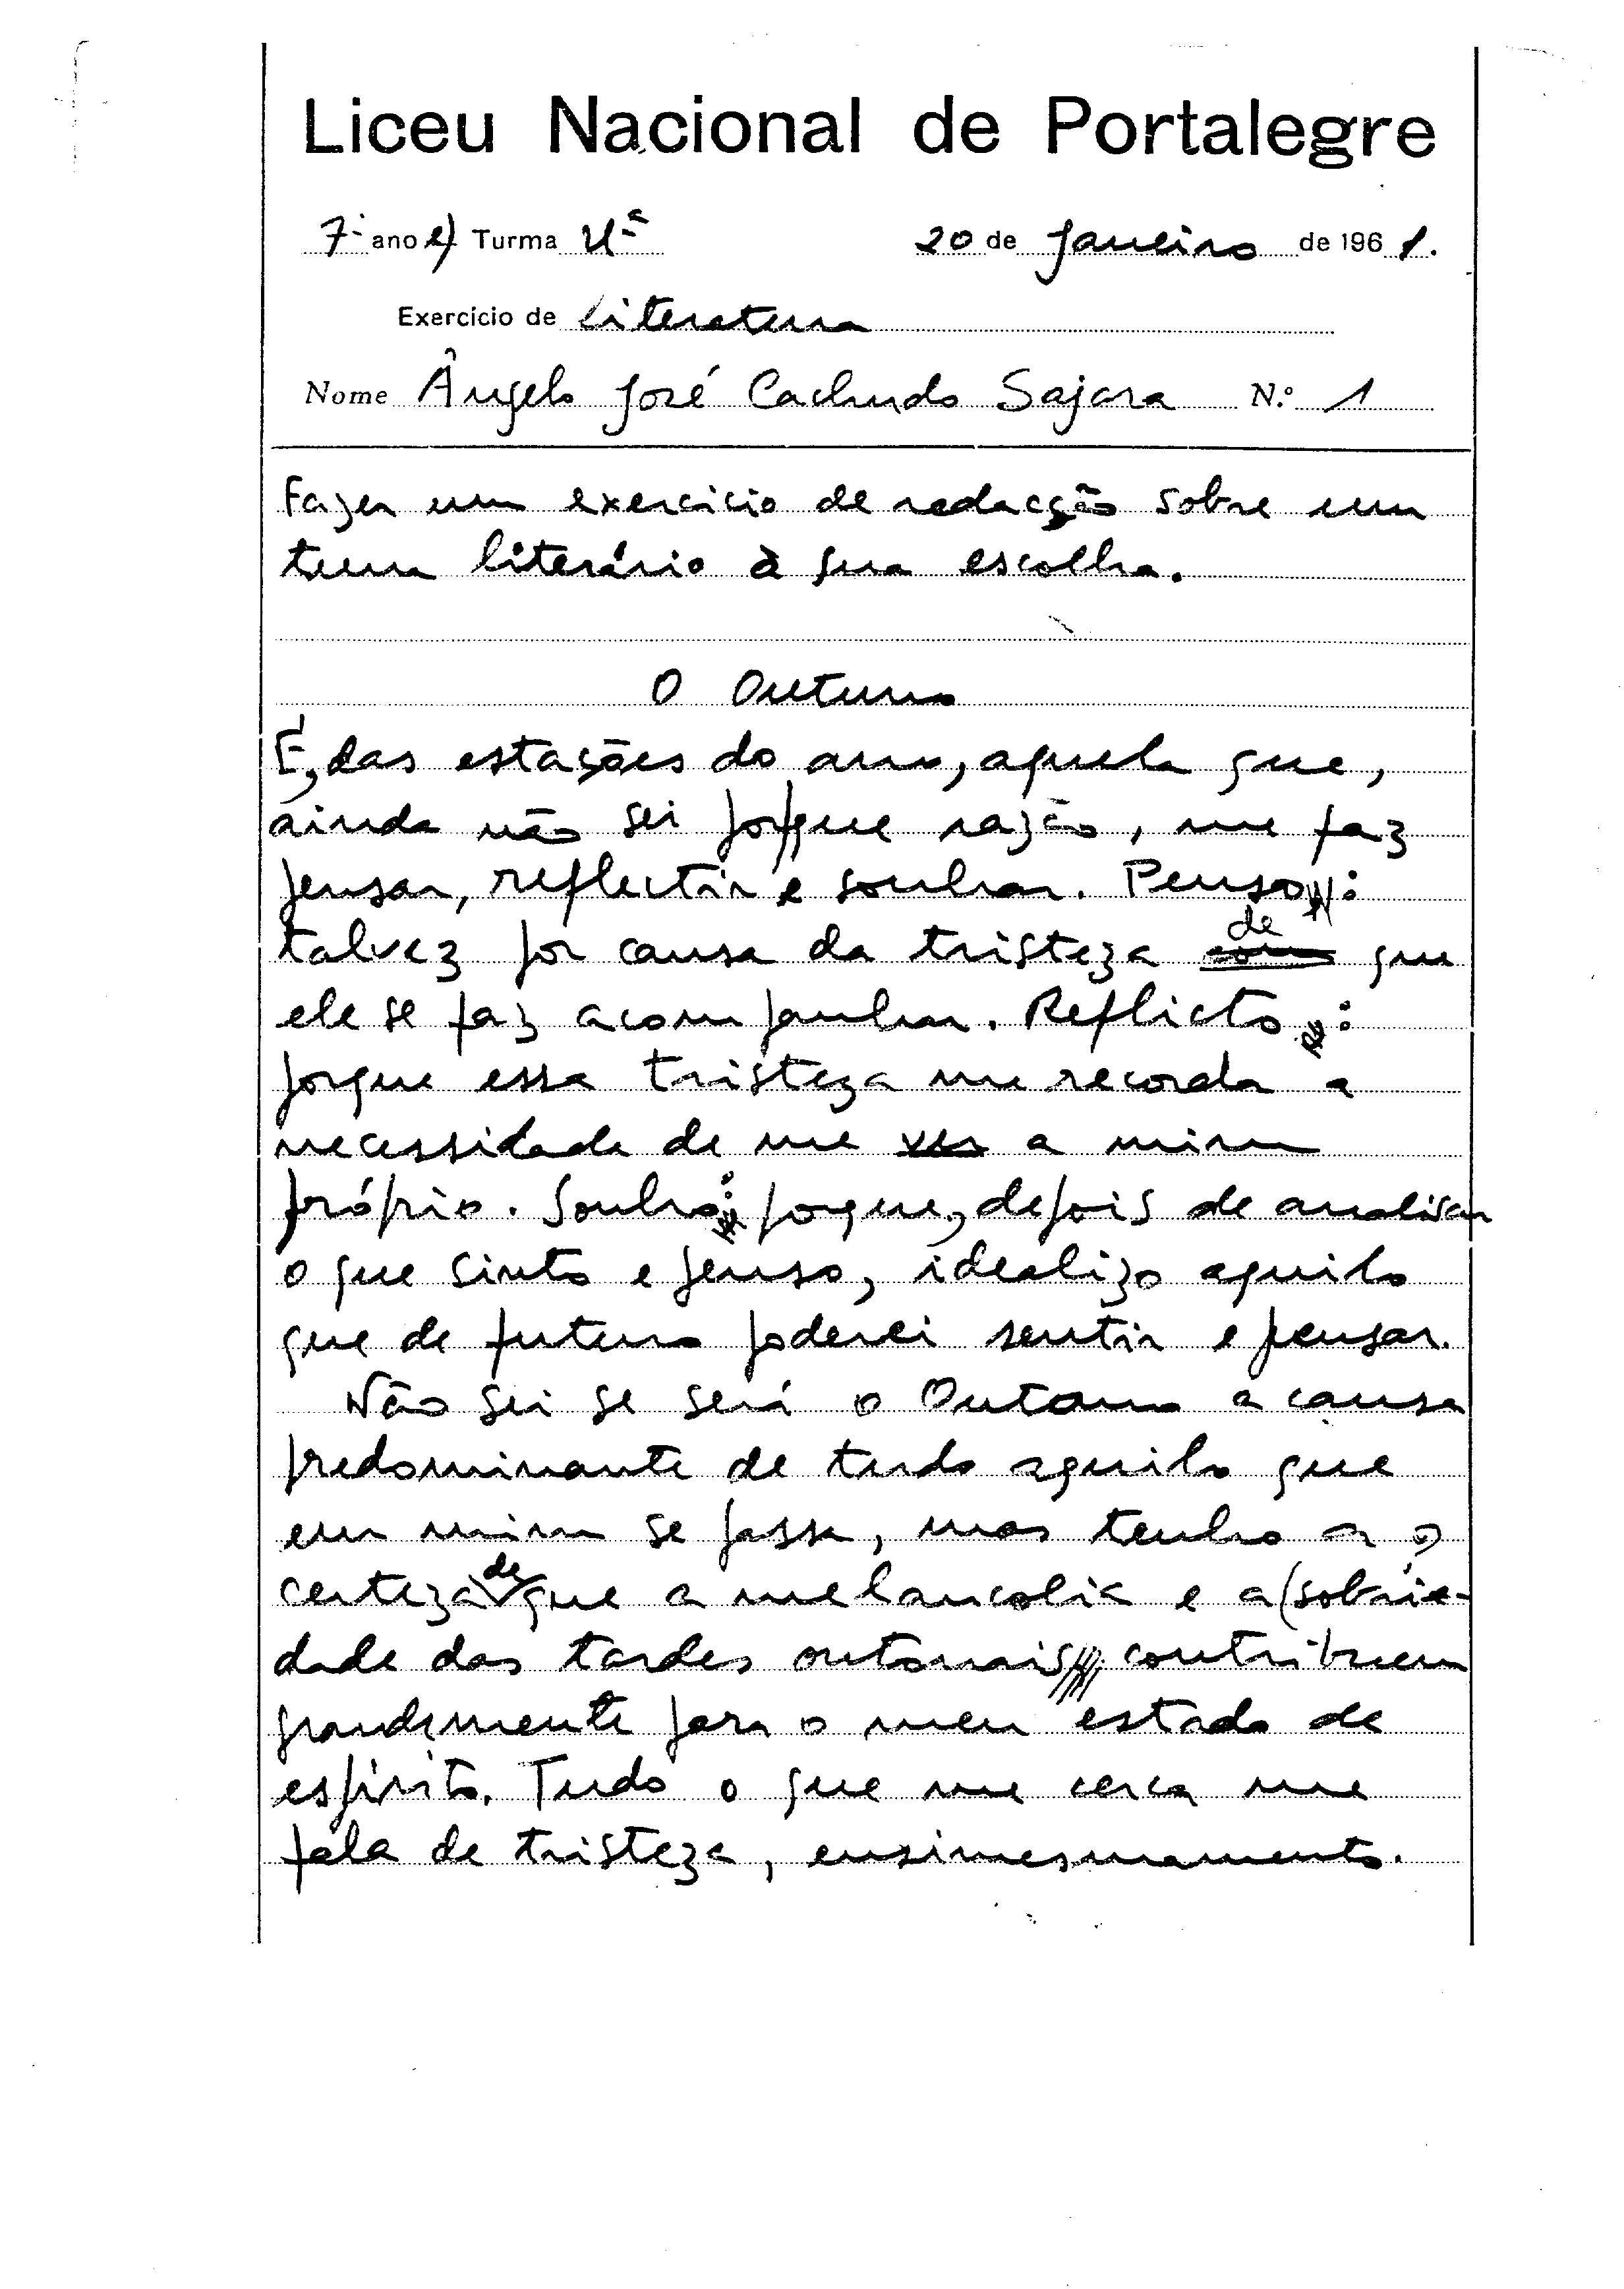 Liceu Nacional de Portalegre
7º ano e) Turma Uª 20 de Janeiro de 1961.
Exercício de Literatura
Nome Ângelo José Cachudo Sajara N.º 1
Fazer um exercício de redacção sobre um
tema literário à sua escolha.
O Outono
É, das estações do ano, aquela que,
ainda não sei porque razão, me faz
pensar, reflectir e sonhar. Penso:
talvez por causa da tristeza com de que
ele se faz acompanhar. Reflicto:
porque essa tristeza me recorda a
necessidade de me ver a mim
próprio. Sonho: porque, depois de analisar
o que sinto e penso, idealizo aquilo
que de futuro poderei sentir e pensar.
Não sei se será o Outono a causa
predominante de tudo aquilo que
em mim se passa, mas tenho a
certeza de que a melancolia e a sobrie-
dade das tardes outonais contribuem
grandemente para o meu estado de
espírito. Tudo o que me cerca me
fala de tristeza, ensimesmamento.